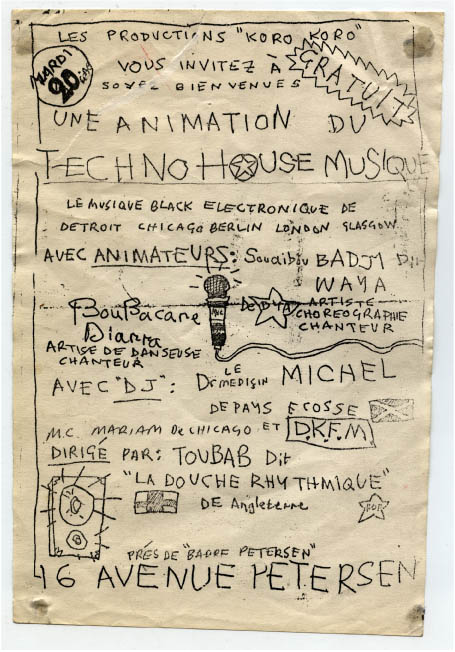 LES PRODUCTIONS "KORO KORO"
MARDI
20
VOUS INVITEZ À
GRATUIT
SOYEZ BIENVENUES
UNE ANIMATION DU
TECHNO HOUSE MUSIQUE
LE MUSIQUE BLACK ELECTRONIQUE DE
DETROIT CHICAGO BERLIN LONDON GLASGOW
AVEC ANIMATEURS: Souaibou BADJI Dit
WAYA
ARTISTE
CHOREOGRAPHIE
CHANTEUR
BouBacane
Dianna
ARTISE DE DANSEUSE
CHANTEUR
AVEC "DJ": LE Dr MEDISIN MICHEL
DE PAYS ECOSSE
M.C. MARIAM De CHICAGO ET D.K.F.M.
DIRIGÉ PAR: TOUBAB Dit
"LA DOUCHE RHYTHMIQUE"
DE Angleterre
PRÉS DE "BARRE PETERSEN"
16 AVENUE PETERSEN